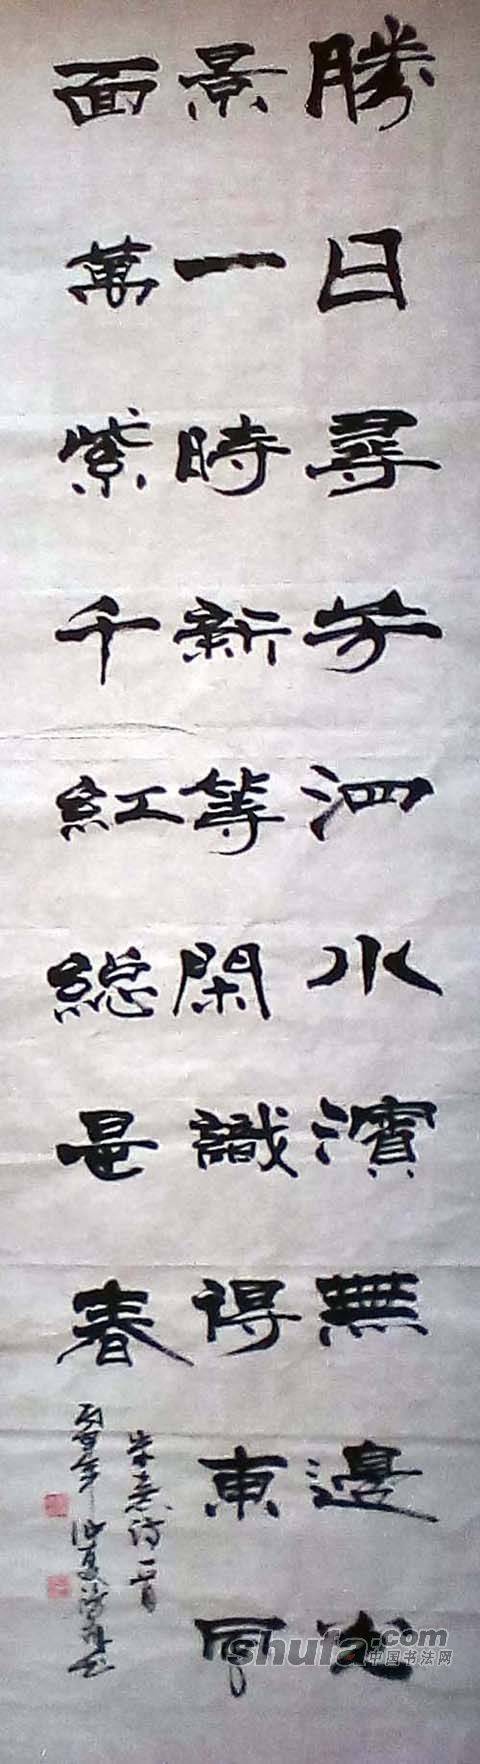 勝日尋芳泗水濱無邊光
景一時新等閑識得東風
面萬紫千紅總是春
朱熹詩一首
shufa.com
中国书法网